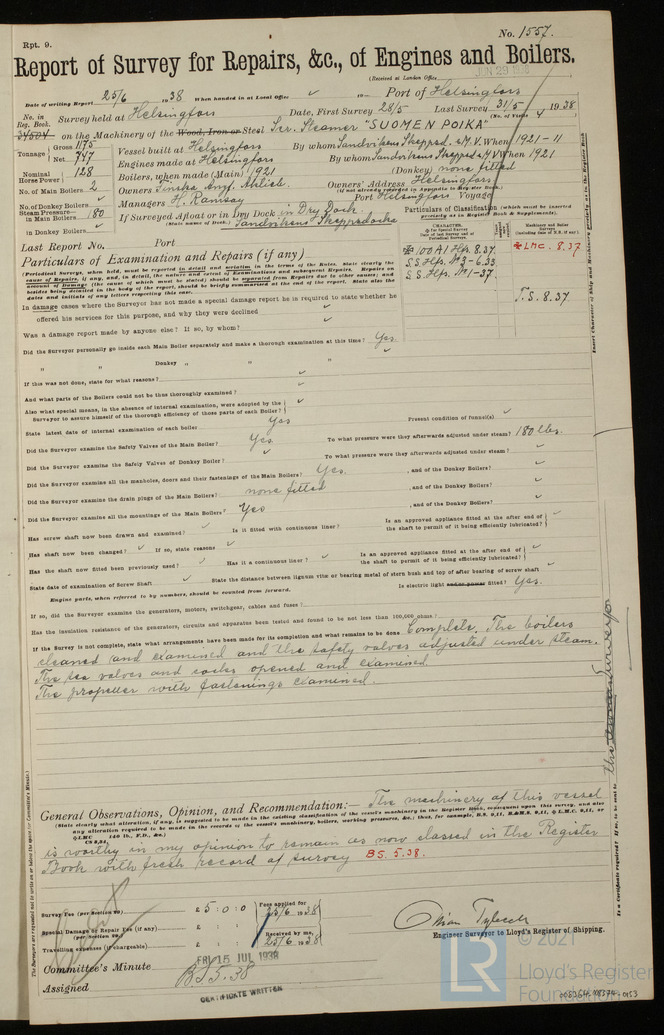 Rpt. 9.
No. 1557.
Report of Survey for Repairs, &c., of Engines and Boilers.
(Received at London Office JUN 29 1938
Date of writing Report 25/6 1938 When handed in at Local Office 19 Port of Helsingfors
No. in Reg. Book. Survey held at Helsingfors Date, First Survey 28/5 Last Survey 31/5 1938
(No. of Visits 4
34504 on the Machinery of the Wood, Iron or Steel Scr. Steamer "SUOMEN POIKA"
Tonnage Gross 1175 Net 747 Vessel built at Helsingfors By whom Sandvikens Skeppsd. & M.V. When 1921-11
Engines made at Helsingfors By whom Sandvikens Skeppsd & M.V. When 1921
Nominal Horse Power 128 Boilers, when made (Main) 1921 (Donkey) none fitted
No. of Main Boilers 2 Owners Finska Ångf. Aktieb. Owners' Address Helsingfors
(if not already recorded in Appendix to Register Book.)
No. of Donkey Boilers Managers H. Ramsay Port Helsingfors Voyage
Steam Pressure in Main Boilers 180 If Surveyed Afloat or in Dry Dock in Dry Dock
(State name of Dock.) Sandvikens Skeppsdocka
in Donkey Boilers
Particulars of Classification (which must be inserted precisely as in Register Book & Supplements).
Last Report No. Port
Particulars of Examination and Repairs (if any)
100A1 Hfs. 8.37. LMC. 8.37
S.S. Hfs. No 3-6.33
S.S. Hfs. No 1-37.
T.S. 8.37.
In damage cases where the Surveyor has not made a special damage report he is required to state whether he
offered his services for this purpose, and why they were declined
Was a damage report made by anyone else? If so, by whom?
Did the Surveyor personally go inside each Main Boiler separately and make a thorough examination at this time? Yes.
" " Donkey " " "
If this was not done, state for what reasons?
And what parts of the Boilers could not be thus thoroughly examined?
Also what special means, in the absence of internal examination, were adopted by the
Surveyor to assure himself of the thorough efficiency of those parts of each Boiler?
State latest date of internal examination of each boiler Yes Present condition of funnel(s)
Did the Surveyor examine the Safety Valves of the Main Boiler? Yes. To what pressure were they afterwards adjusted under steam? 180 lbs.
Did the Surveyor examine the Safety Valves of Donkey Boiler? To what pressure were they afterwards adjusted under steam?
Did the Surveyor examine all the manholes, doors and their fastenings of the Main Boilers? Yes. , and of the Donkey Boilers?
Did the Surveyor examine the drain plugs of the Main Boilers? none fitted , and of the Donkey Boilers?
Did the Surveyor examine all the mountings of the Main Boilers? Yes , and of the Donkey Boilers?
Has screw shaft now been drawn and examined? Is it fitted with continuous liner? Is an approved appliance fitted at the after end of the shaft to permit of it being efficiently lubricated?
Has shaft now been changed? If so, state reasons
Has the shaft now fitted been previously used? Has it a continuous liner? Is an approved appliance fitted at the after end of the shaft to permit of it being efficiently lubricated?
State date of examination of Screw Shaft State the distance between lignum vitæ or bearing metal of stern bush and top of after bearing of screw shaft
Engine parts, when referred to by numbers, should be counted from forward. Is electric light and/or power fitted? Yes.
If so, did the Surveyor examine the generators, motors, switchgear, cables and fuses?
Has the insulation resistance of the generators, circuits and apparatus been tested and found to be not less than 100,000 ohms?
If the Survey is not complete, state what arrangements have been made for its completion and what remains to be done Complete. The boilers
cleaned and examined and the safety valves adjusted under steam.
The sea valves and cocks opened and examined.
The propeller with fastenings examined.
General Observations, Opinion, and Recommendation:— The machinery of this vessel
is worthy in my opinion to remain as now classed in the Register
Book with fresh record of survey BS. 5.38.
Survey Fee (per Section 29) £ 5 : 0 : 0 Fees applied for 25/6 1938
Special Damage or Repair Fee (if any) (per Section 29) £ : : Received by me,
Travelling expenses (if chargeable) £ : : 25/6 1938
Engineer Surveyor to Lloyd's Register of Shipping.
Committee's Minute FRI 15 JUL 1938
Assigned BS 5.38
CERTIFICATE WRITTEN
LR © 2021
Lloyd's Register
Foundation